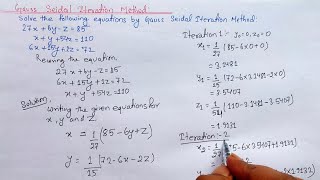 Gauss Seidal Iteration Method:
Solve the following equations by Gauss Seidal Iteration Method:
27x + 6y - z = 85
x + y + 54z = 110
6x + 15y + 2z = 72
Reusing the equation
27x + 6y - z = 85
6x + 15y + 2z = 72
x + y + 54z = 110
Solution:
Writing the given equations for
x, y and z
x = 1/27 (85 - 6y + z)
y = 1/15 (72 - 6x - 2z)
Iteration 1:- y₀ = 0, z₀ = 0
x₁ = 1/27 (85 - 6x0 + 0)
= 3.1481
y₁ = 1/15 (72 - 6x3.1481 - 2x0)
= 3.5407
z₁ = 1/54 (110 - 3.1481 - 3.5407)
= 1.9131
Iteration:- 2
x₂ = 1/27 (85 - 6x3.5407 + 1.9131)